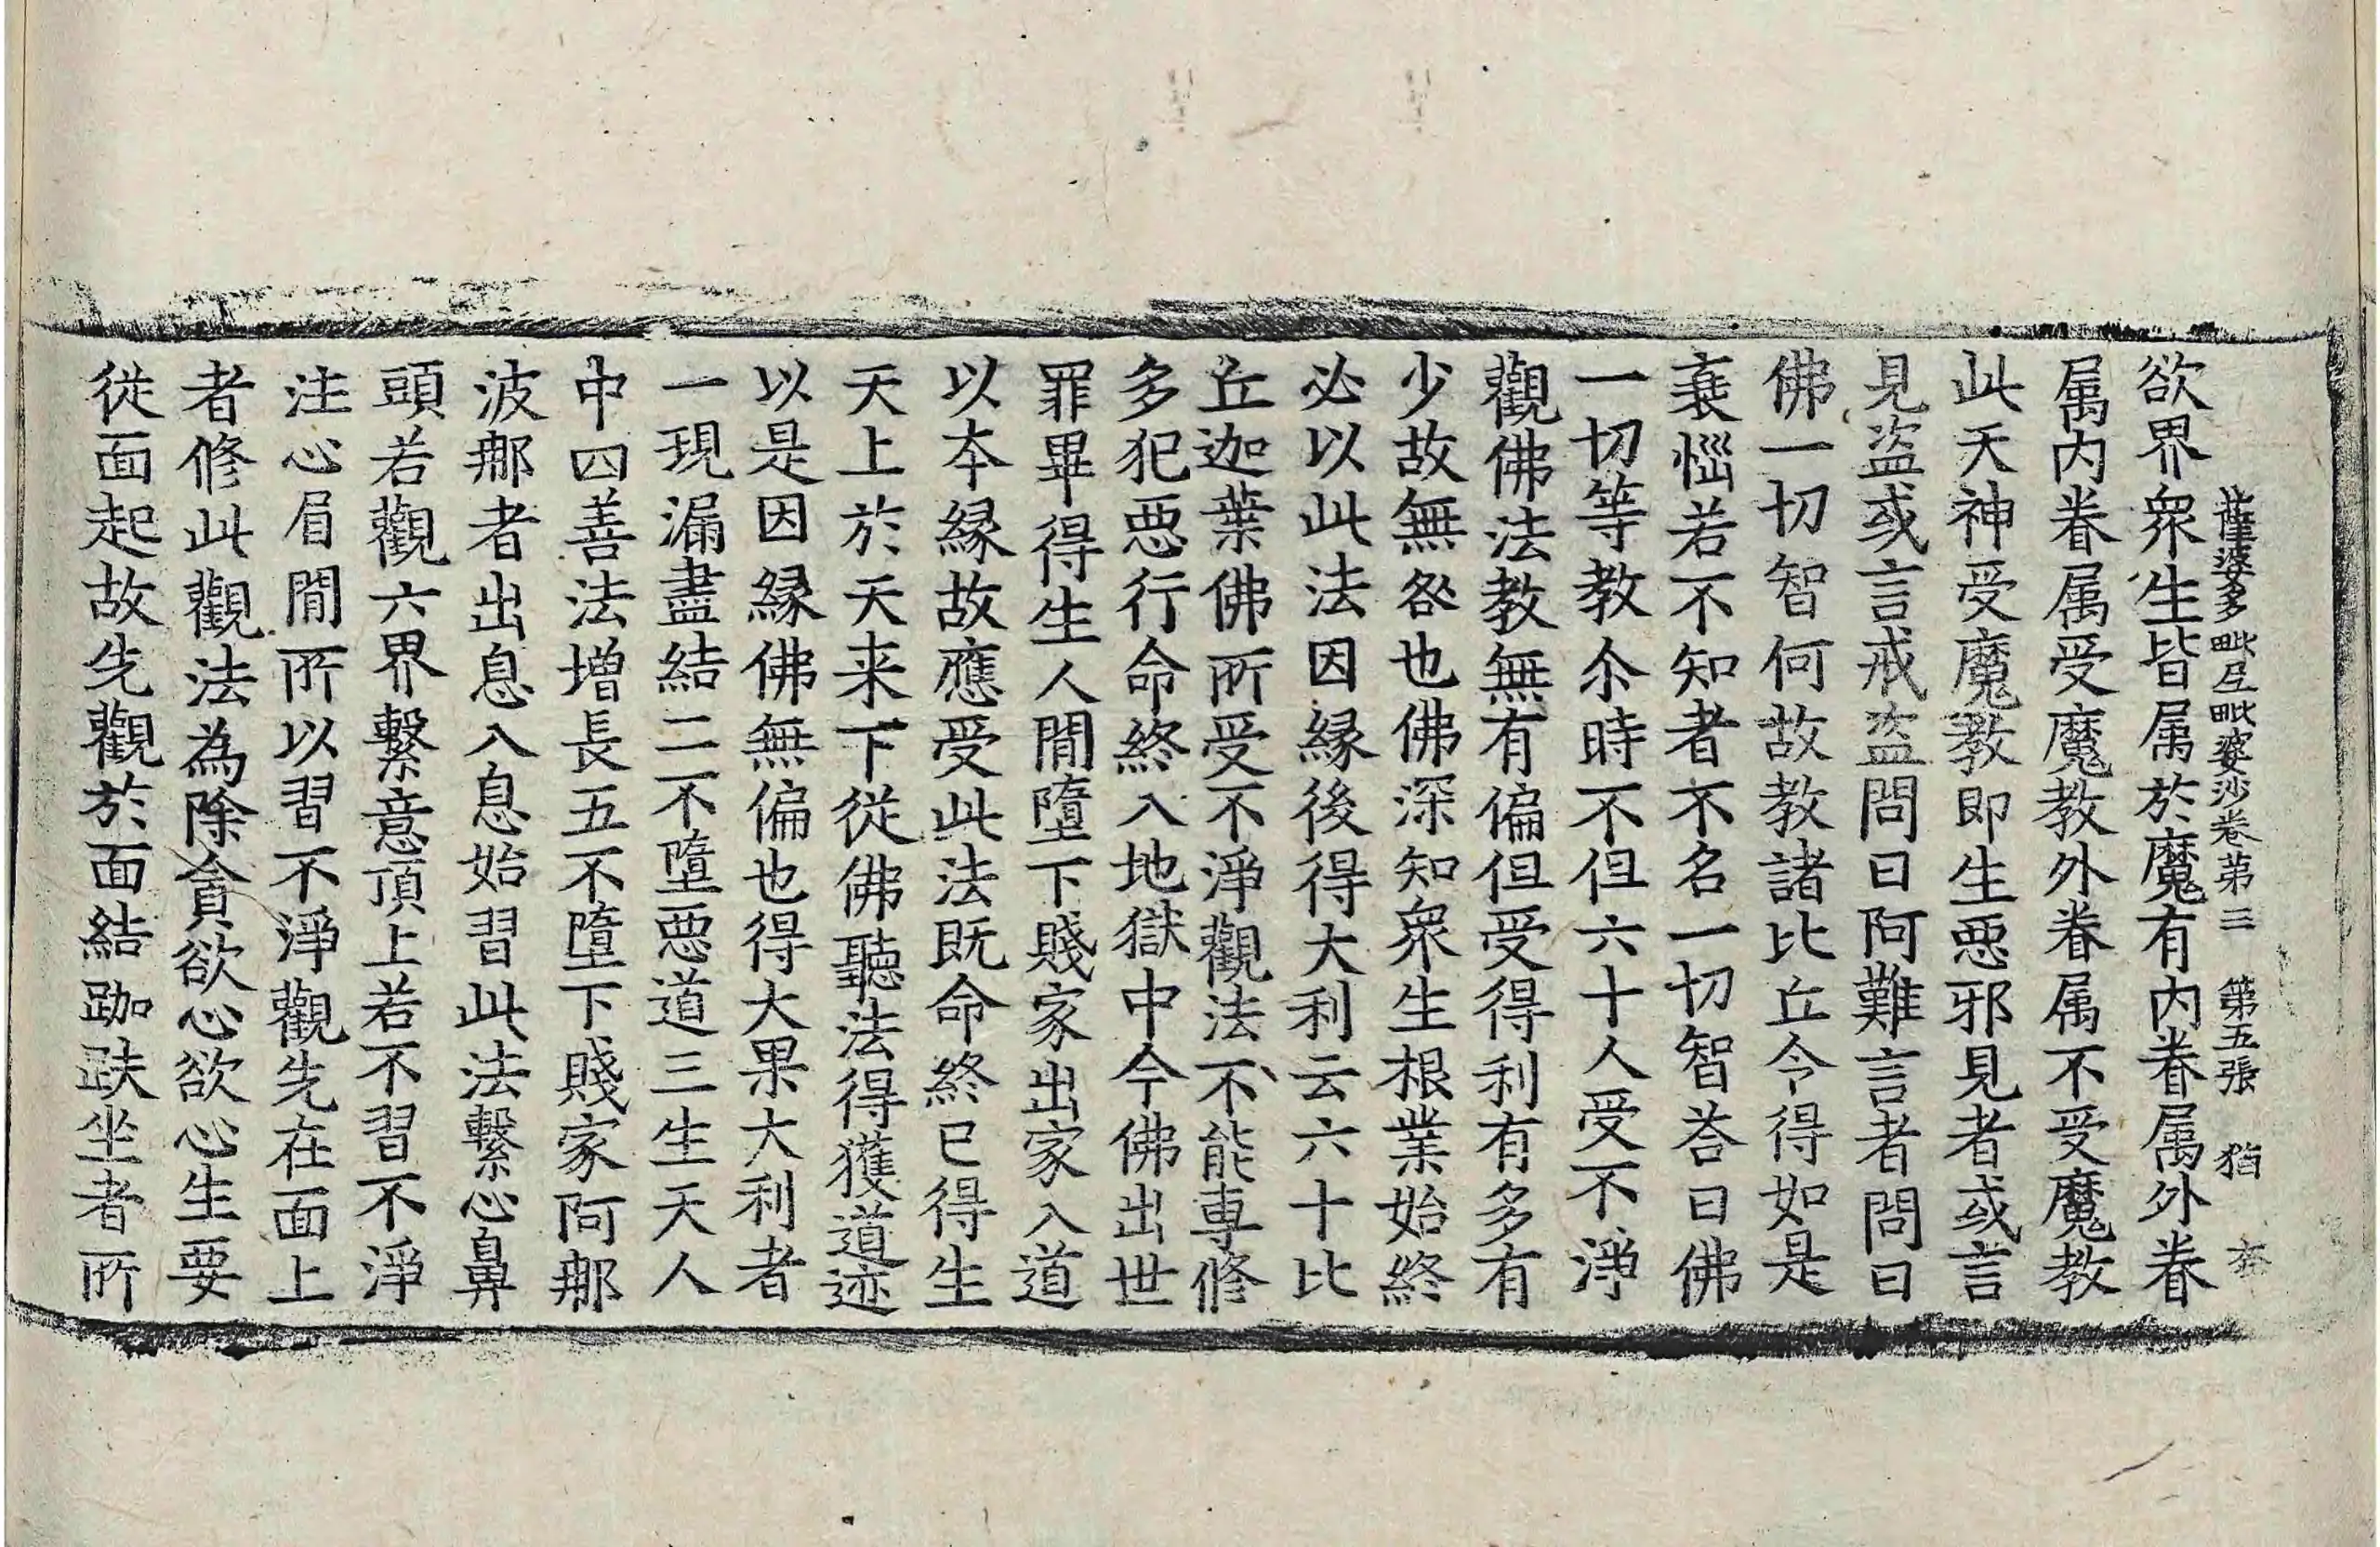 薩婆多毗尼毗婆沙卷第三 第五張 猶
欲界衆生皆属於魔有内眷属外眷
属内眷属受魔教外眷属不受魔教
此天神受魔教即生惡邪見者或言
見盗或言戒盗問曰阿難言者問曰
佛一切智何故教諸比丘令得如是
衰惱若不知者不名一切智荅曰佛
一切等教尒時不但六十人受不淨
觀佛法教無有偏但受得利有多有
少故無咎也佛深知衆生根業始終
必以此法因縁後得大利云六十比
丘迦葉佛所受不淨觀法不能專修
多犯惡行命終入地獄中今佛出世
罪畢得生人間墮下賤家出家入道
以本縁故應受此法既命終已得生
天上於天来下從佛聽法得獲道迹
以是因縁佛無偏也得大果大利者
一現漏盡結二不墮惡道三生天人
中四善法增長五不墮下賤家阿那
波那者出息入息始習此法繫心鼻
頭若觀六界繫意頂上若不習不淨
注心眉間所以習不淨觀先在面上
者修此觀法為除貪欲心欲心生要
從面起故先觀於面結跏趺坐者所